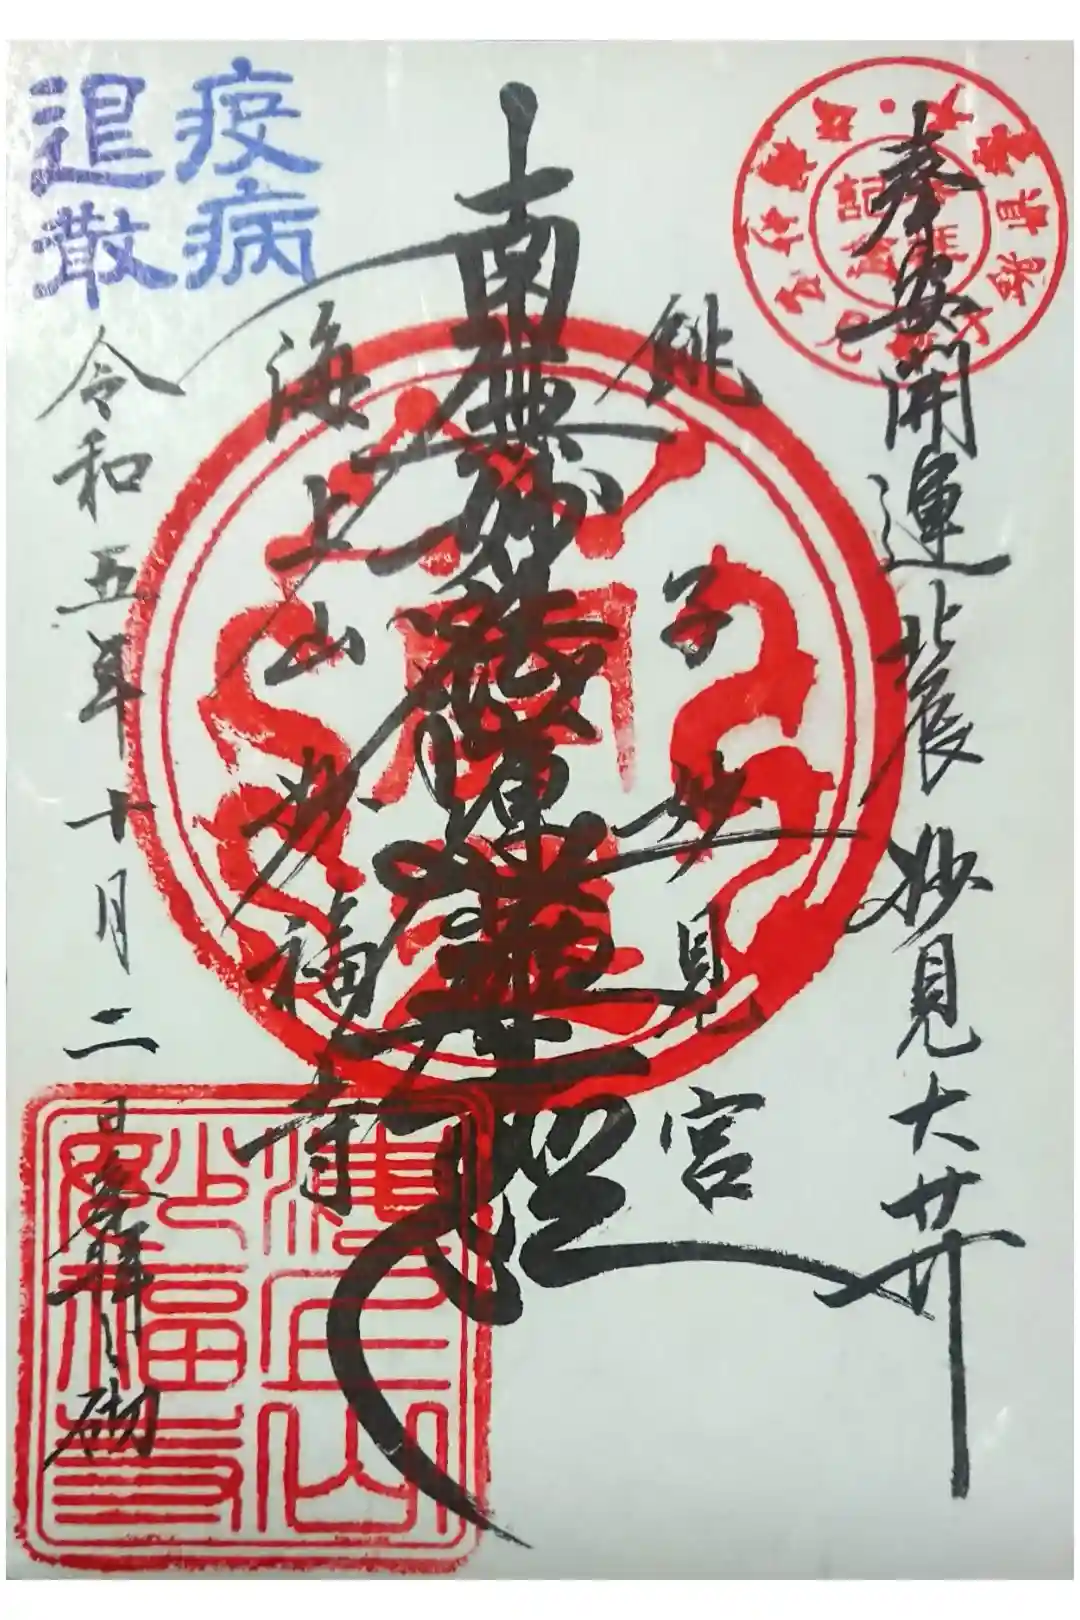 奉安開運北辰妙見大菩薩
銚子妙見宮
南無妙法蓮華経
海上山妙福寺
令和五年十月二日参拝之砌
疫病
退散
海上山
妙福寺